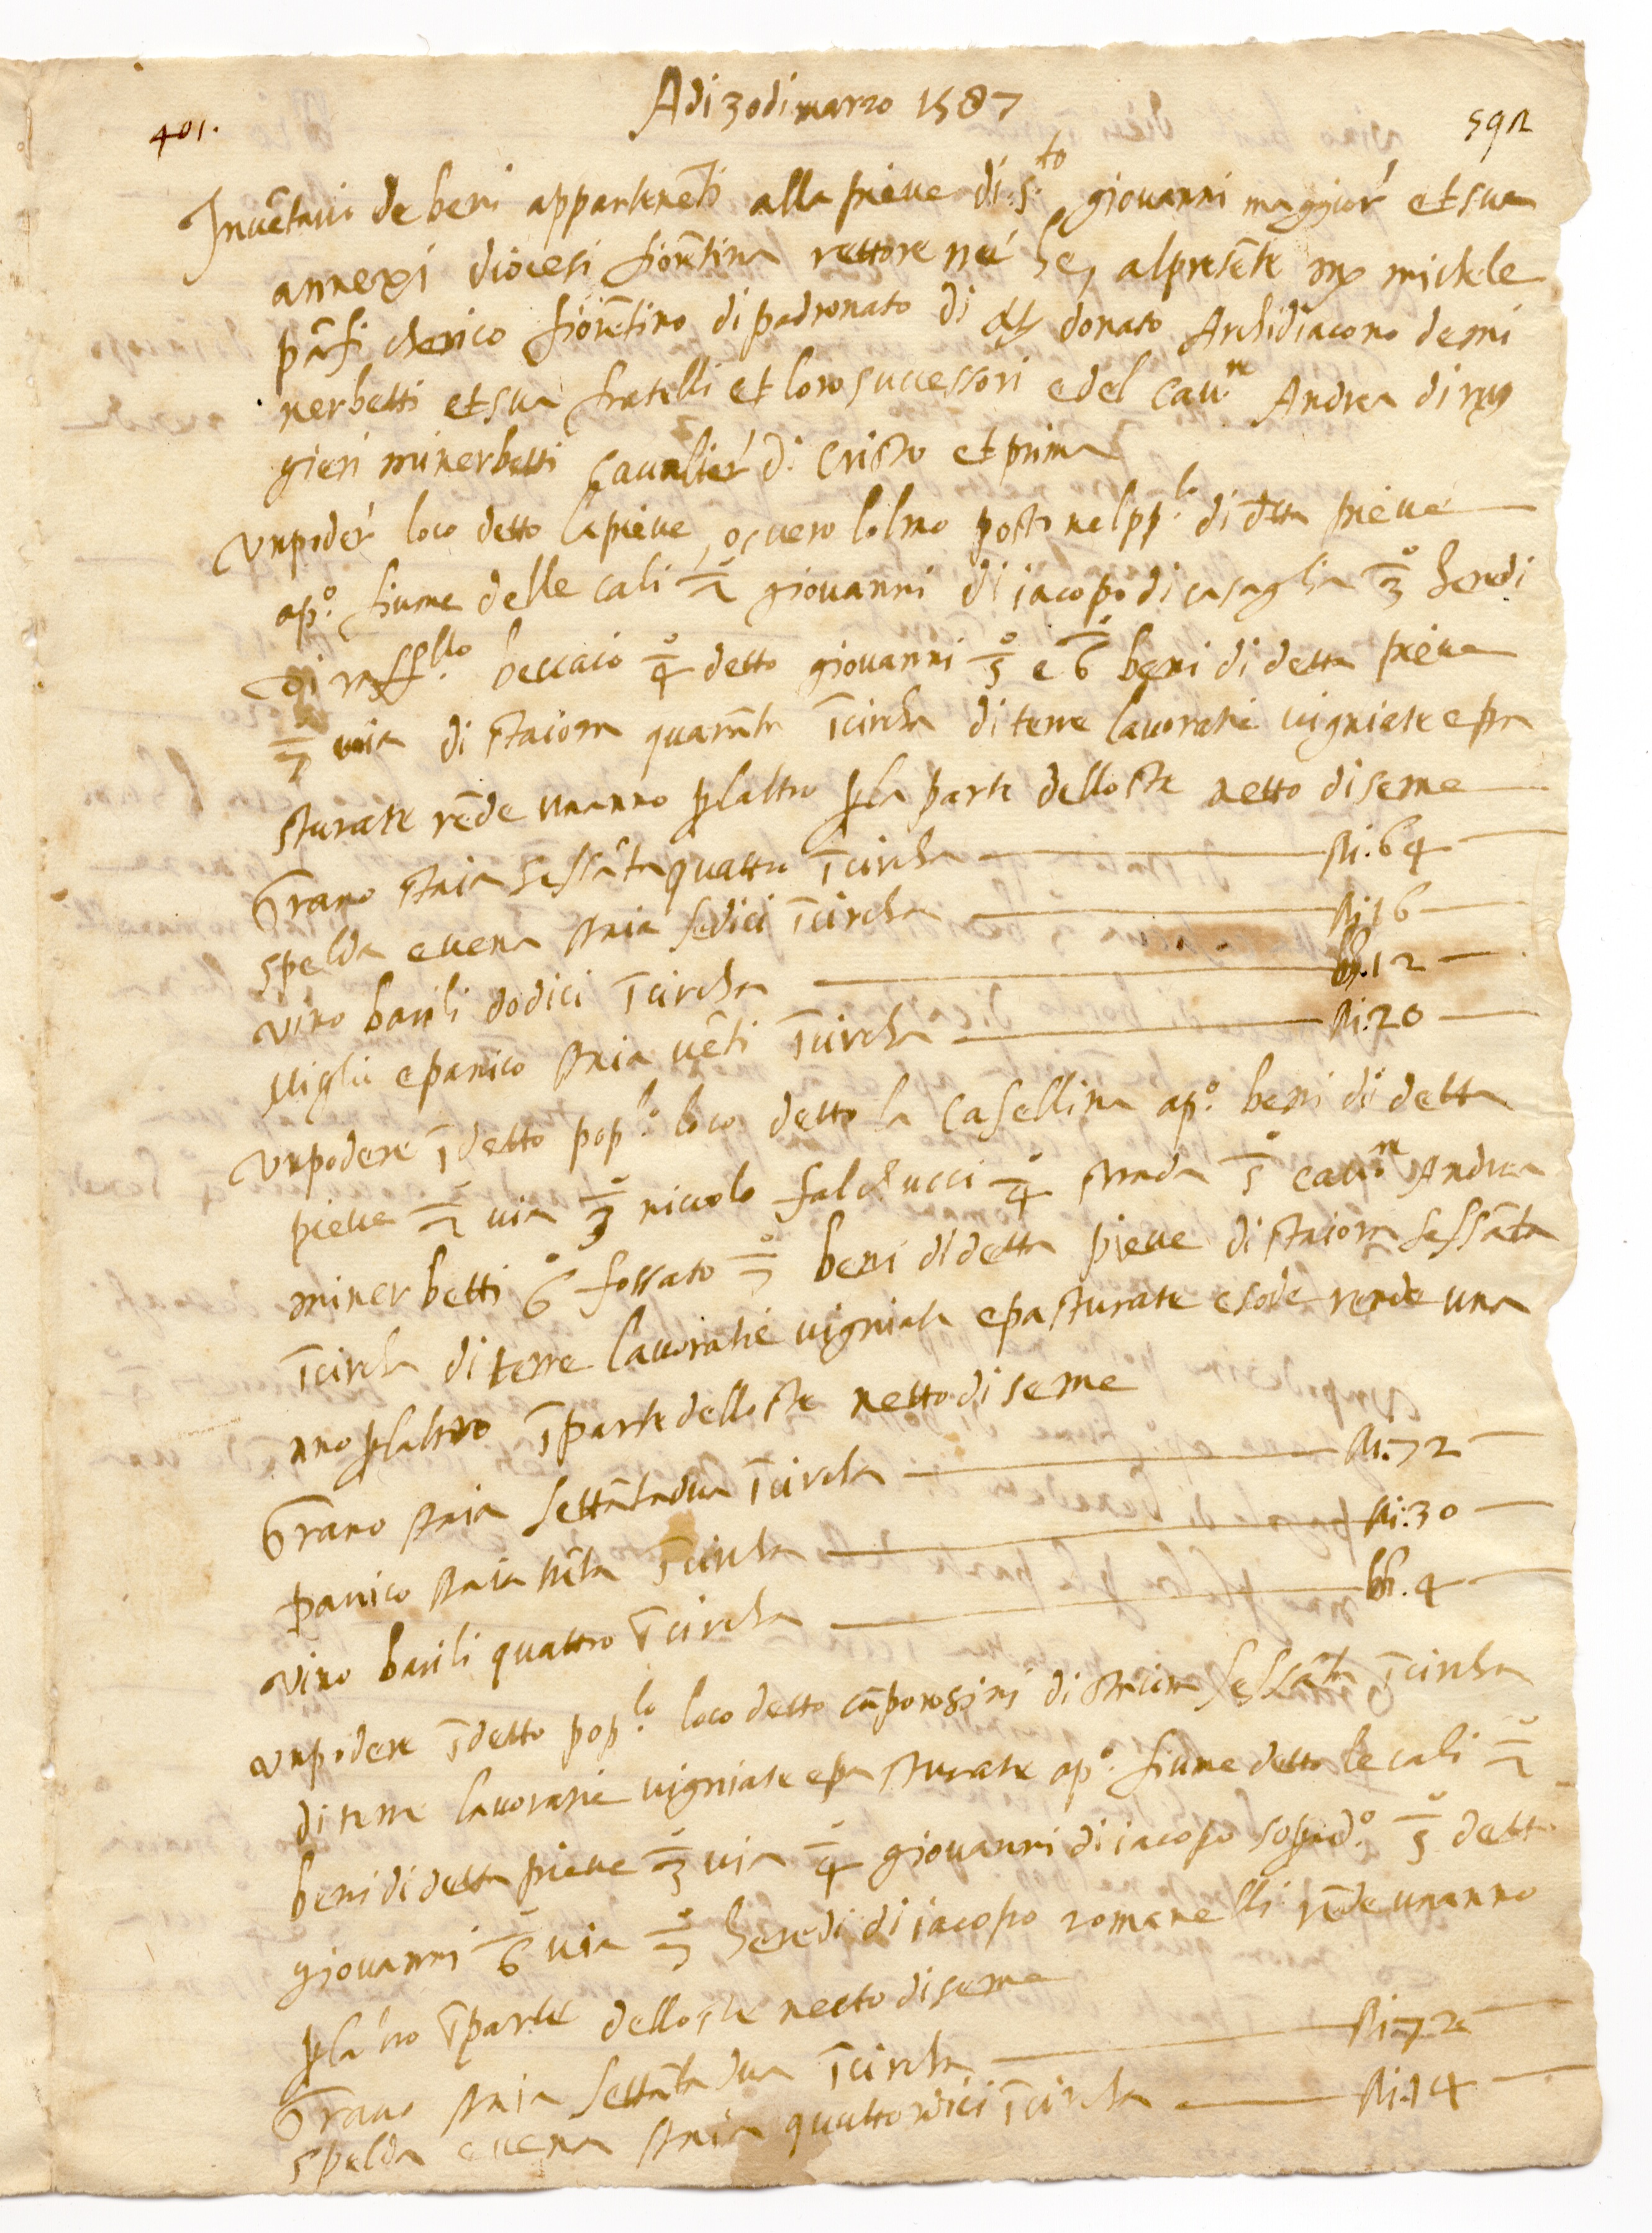 Adi 30 di marzo 1587
401.
592
Inuētari de beni appartenēti alla pieue di S.to giouanni maggior et sua
annexi diocesi fiorētina rettore ne he alpresēte mẓ michele
chierico fiorētino di padronato di donato Archidiacono de mi
nerbetti et sua fratelli et loro successori e del cau.re Andrea di rug
gieri minerbetti caualier di Cristo et prima
Vn poder loco detto la pieue, ouero lolmo posto nel pp.lo di detta pieue
ap.o fiume delle cali 2 giouanni di iacopo di casaglia 3 heredi
di raff.llo beccaio 4 detto giouanni 5 e 6 beni di detta pieue
7 uia di staiora quarāta ī circha di terre lauoratie uigniate e pa
sturate rēde unanno p laltro p la parte delloste netto di seme
Grano staia sessāta quattro ī circha st.i 64
spelda e uena staia sedici ī circha st.i 16
vino barili dodici ī circha bb.12
Miglio e panico staia uēti ī circha st.i 20
Vn podere ī detto pop.lo loco detto la casellina ap.o beni di detta
pieue 2 uia 3 niccolo falchucci 4 strada 5 cau.re Andrea
minerbetti 6 fossato 7 beni di detta pieue di staiora sessāta
ī circha di terre lauoratie uigniate e pasturate e sode rende una
nno p laltro ī parte delloste netto di seme
Grano staia settātadua ī circha st.i 72
panico staia trēta ī circha st.i 30
vino barili quattro ī circha bb. 4
vn podere ī detto pop.lo loco detto di staiora sessāta ī circha
di terre lauoratie uigniate e pasturate ap.o fiume detto le cali 2
beni di detta pieue 3 uia 4 giouanni di iacopo sop.ad.o 5 detto
giouanni 6 uia 7 heredi di iacopo romanelli rēde unanno
p laltro ī parte delloste netto di seme
Grano staia settāta dua ī circha st.i 72
spelda e uena staia quattordici ī circha st.i 14